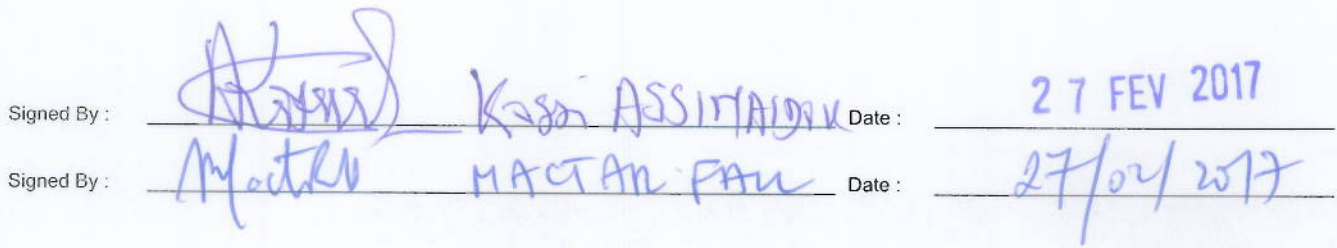 Signed By : Kassi Date : 27 FEV 2017
Signed By : MACTAR FALL Date : 27/02/2017